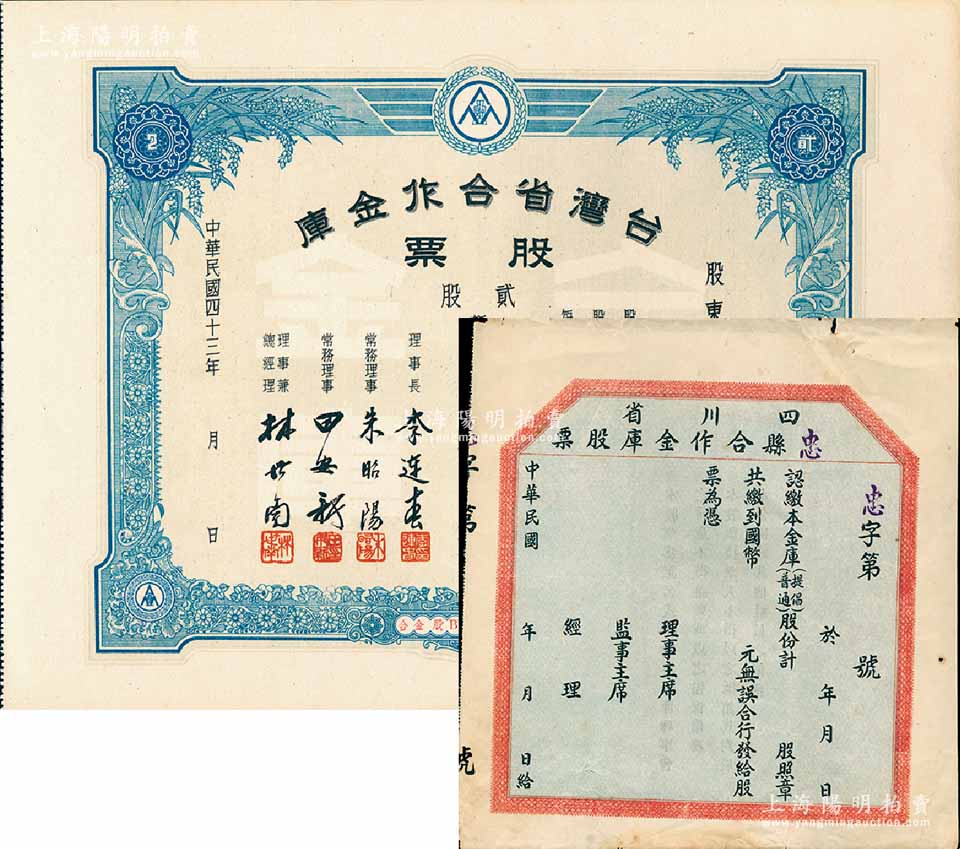 上海陽明拍賣
www.yangmingauction.com
2
貳
台灣省合作金庫
股票
股東
貳股
理事長 李連春
常務理事 朱昭陽
常務理事
理事兼總經理 林世南
中華民國四十三年 月 日
字第
號
合金股B
上海陽明拍賣
四川省
忠縣合作金庫股票
忠字第 號
於 年 月 日
認繳本金庫(提倡普通)股份計 股照章
共繳到國幣 元無誤合行發給股
票為憑
理事主席
監事主席
經理
中華民國 年 月 日給
上海陽明拍賣
www.yangmingauction.com